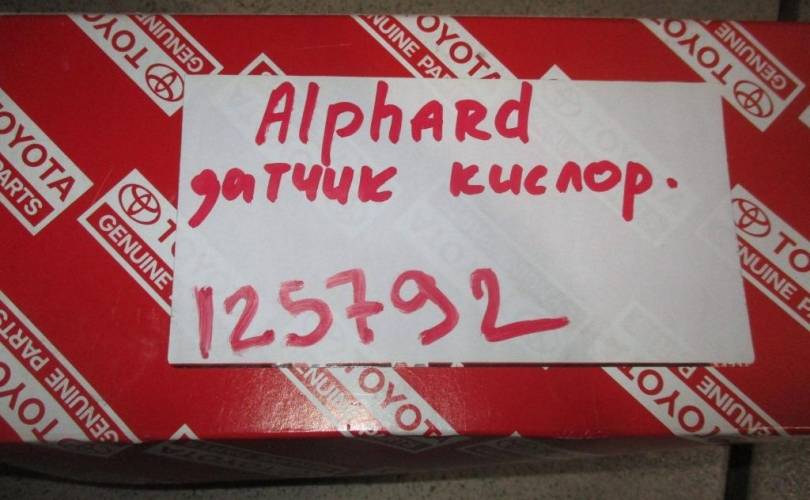 TOYOTA GENUINE
TOYOTA GENUINE PARTS
TOYOTA GENUINE
TOYOTA PARTS
Alphard
датчик кислор.
125792
TOYOTA GENUINE
TOYOTA GENUINE PARTS
TOYOTA GENUINE PARTS
TOYOTA
TOYOTA GENUINE PARTS